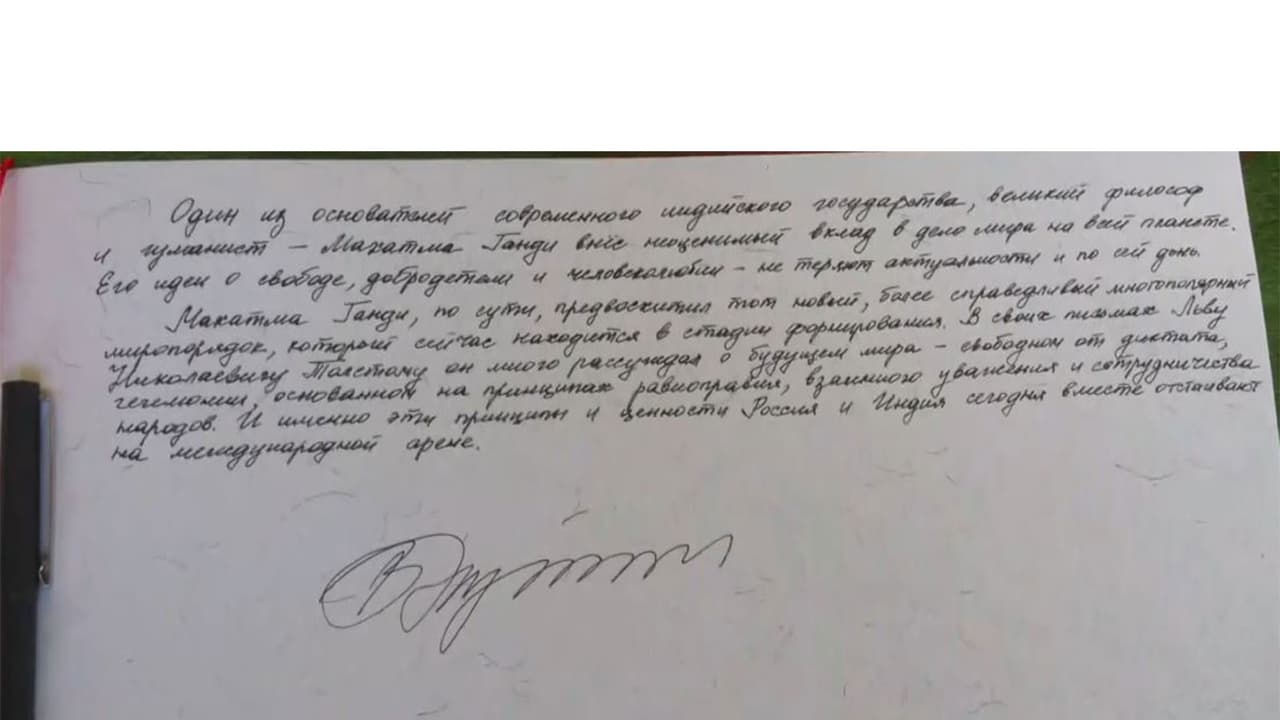 Один из основателей современного индийского государства, великий философ
и гуманист – Махатма Ганди внёс неоценимый вклад в дело мира на всей планете.
Его идеи о свободе, добродетели и человеколюбии – не теряют актуальности и по сей день.
Махатма Ганди, по сути, предвосхитил тот новый, более справедливый многополярный
миропорядок, который сейчас находится в стадии формирования. В своих письмах Льву
Николаевичу Толстому он много рассуждал о будущем мира – свободном от диктата,
гегемонии, основанном на принципах равноправия, взаимного уважения и сотрудничества
народов. И именно эти принципы и ценности Россия и Индия сегодня вместе отстаивают
на международной арене.